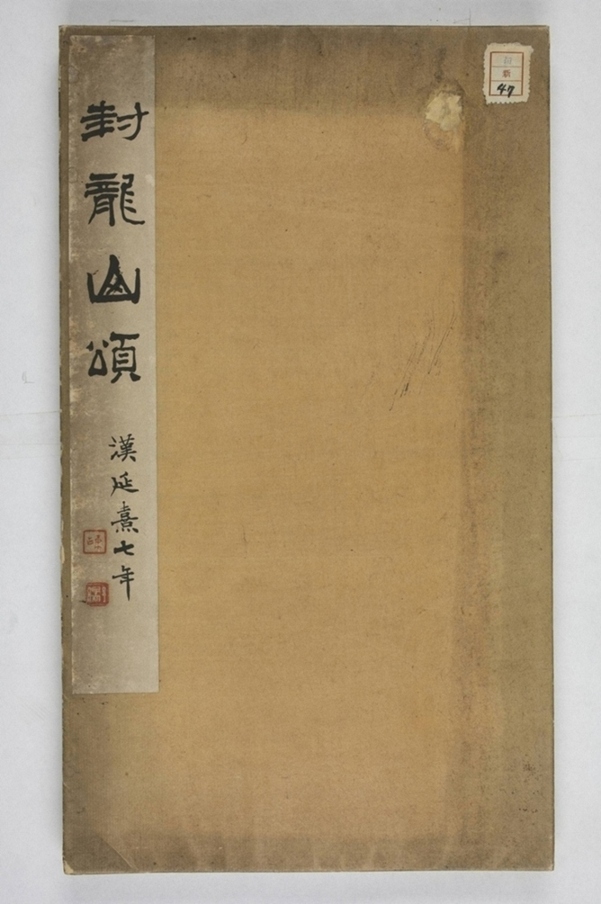 封龍山頌
漢延熹七年
新
47